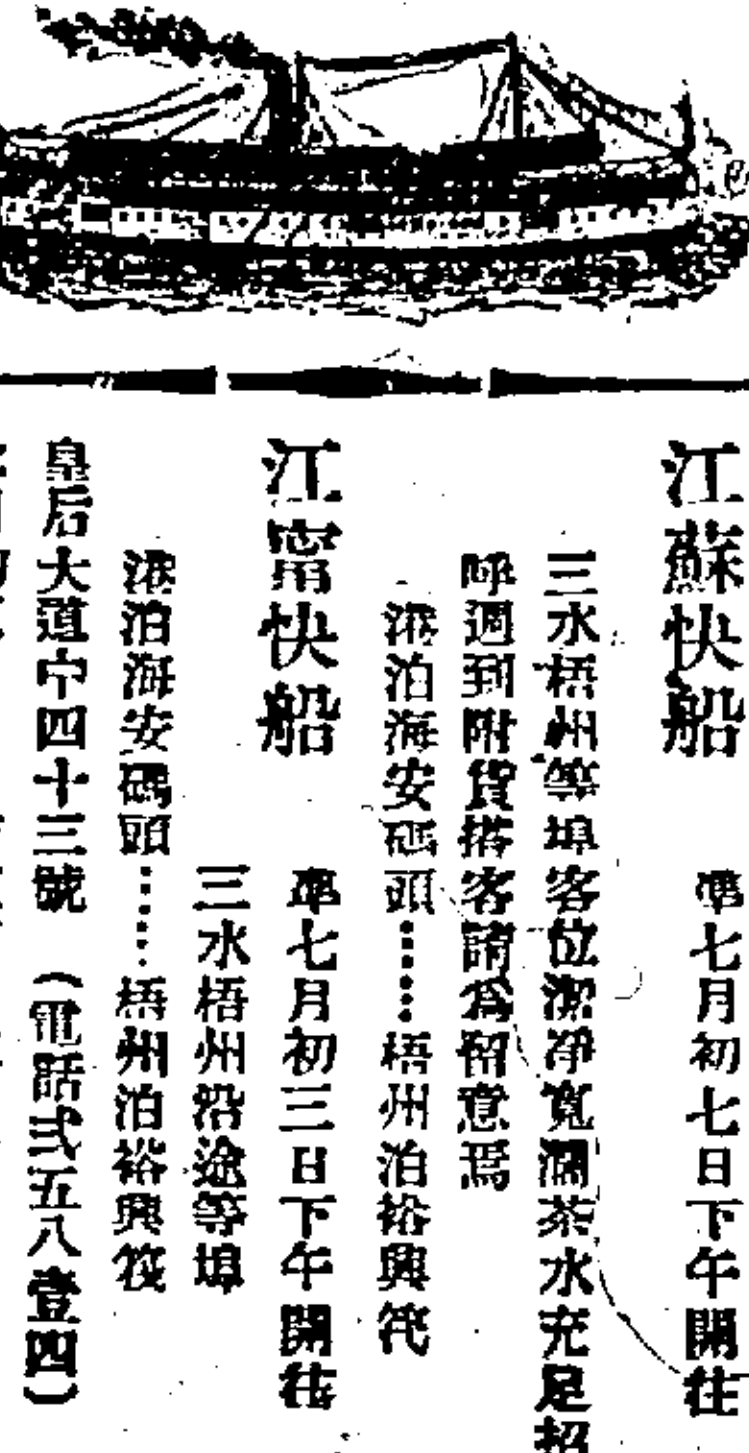 江蘇快船
準七月初七日下午開往
三水梧州等埠客位潔淨寬濶茶水充足招
呼週到附貨搭客請爲留意焉
港泊海安碼頭⋯⋯梧州泊裕興筏
江甯快船
準七月初三日下午開往
三水梧州沿途等埠
港泊海安碼頭⋯⋯梧州泊裕興筏
皇后大道中四十三號 (電話弍五八壹四)